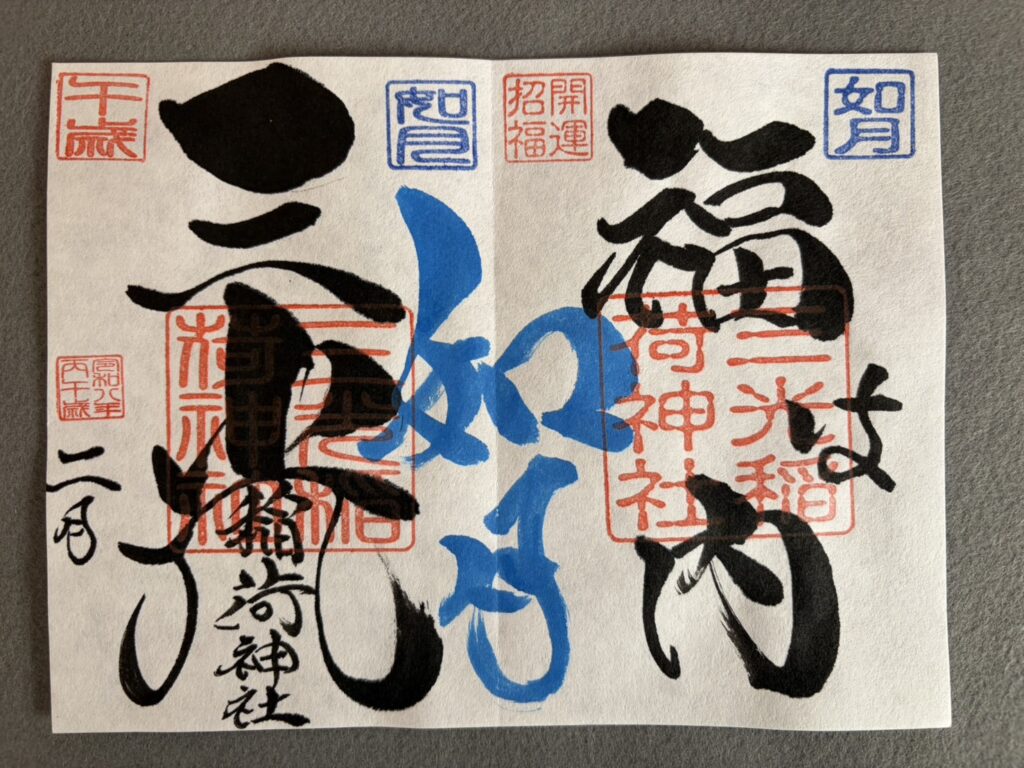 如月
福は内
三光稲荷神社
開運招福
如月
如月
三光
稲荷神社
三光稲荷神社
午歳
令和八年
丙午歳
二月